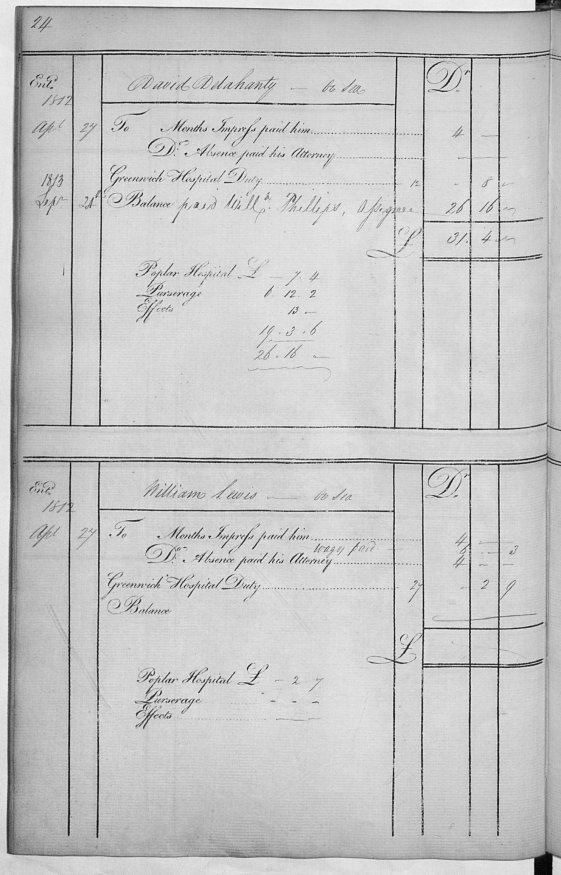 24
Ent.d Dr
1812 David Adahanty — Or Sea
Apl 27 To Months Impress paid him 4 —
Do. Absence paid his Attorney — —
Greenwich Hospital Duty 12 - 8 —
1813
Sepr 28th Balance paid Willm Phillips, Assignee 26 16 —
£ 31. 4 —
Poplar Hospital £ — 7. 4
Purserage 6. 12. 2
Effects 13 —
19. 3. 6
26. 16 —
Ent.d Dr
1812 William Lewis — Or Sea
Apl 27 To Months Impress paid him 4 —
wages paid 5 — 3
Do. Absence paid his Attorney 4 — —
Greenwich Hospital Duty 27 - 2 9
Balance
£
Poplar Hospital £ — 2 7
Purserage - - -
Effects